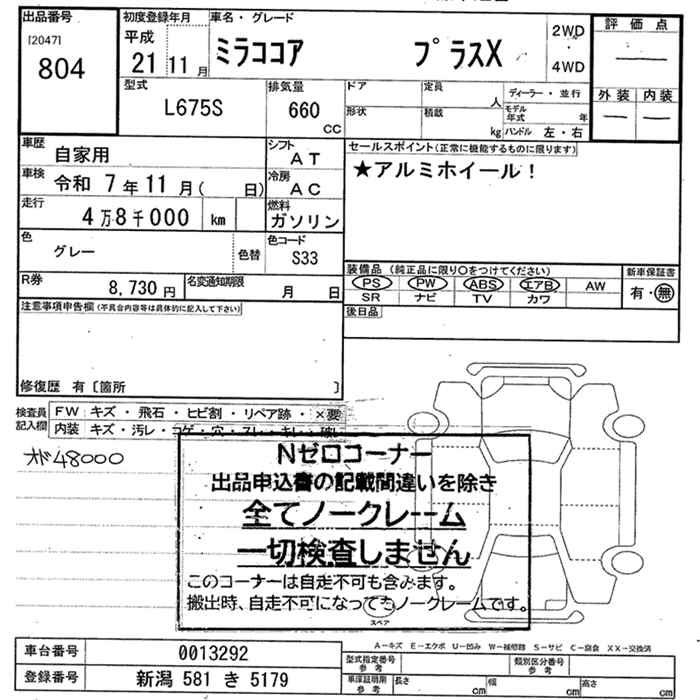 出品番号
[2047]
804
初度登録年月
平成
21 11 月
車名・グレード
ミラココア プラスX
2WD
・
4WD
評価点
外装 内装
型式
L675S
排気量
660
CC
ドア
定員
人
形状
積載
kg
ディーラー・並行
モデル年式 年
ハンドル 左・右
車歴
自家用
シフト
AT
車検
令和 7年 11月( 日)
冷房
AC
走行
4万8千000 km
燃料
ガソリン
色
グレー
色替
色コード
S33
R券
8,730 円
名変通知期限
月 日
セールスポイント(正常に機能するものに限ります)
★アルミホイール!
装備品(純正品に限り○をつけてください)
PS PW ABS エアB AW
SR ナビ TV カワ
新車保証書
有・無
後日品
注意事項申告欄(不具合内容等は具体的に記入して下さい)
修復歴 有〔箇所 〕
検査員記入欄
FW キズ・飛石・ヒビ割・リペア跡・×要
内装 キズ・汚レ・コゲ・穴・スレ・キレ・破レ
48000
Nゼロコーナー
出品申込書の記載間違いを除き
全てノークレーム
一切検査しません
このコーナーは自走不可も含みます。
搬出時、自走不可になってもノークレームです。
スペア
A-キズ E-エクボ U-凹み W-補修跡 S-サビ C-腐食 XX-交換済
車台番号
0013292
登録番号
新潟 581 き 5179
型式指定番号
参考
類別区分番号
参考
車庫証明用
参考
長さ cm
幅 cm
高さ cm